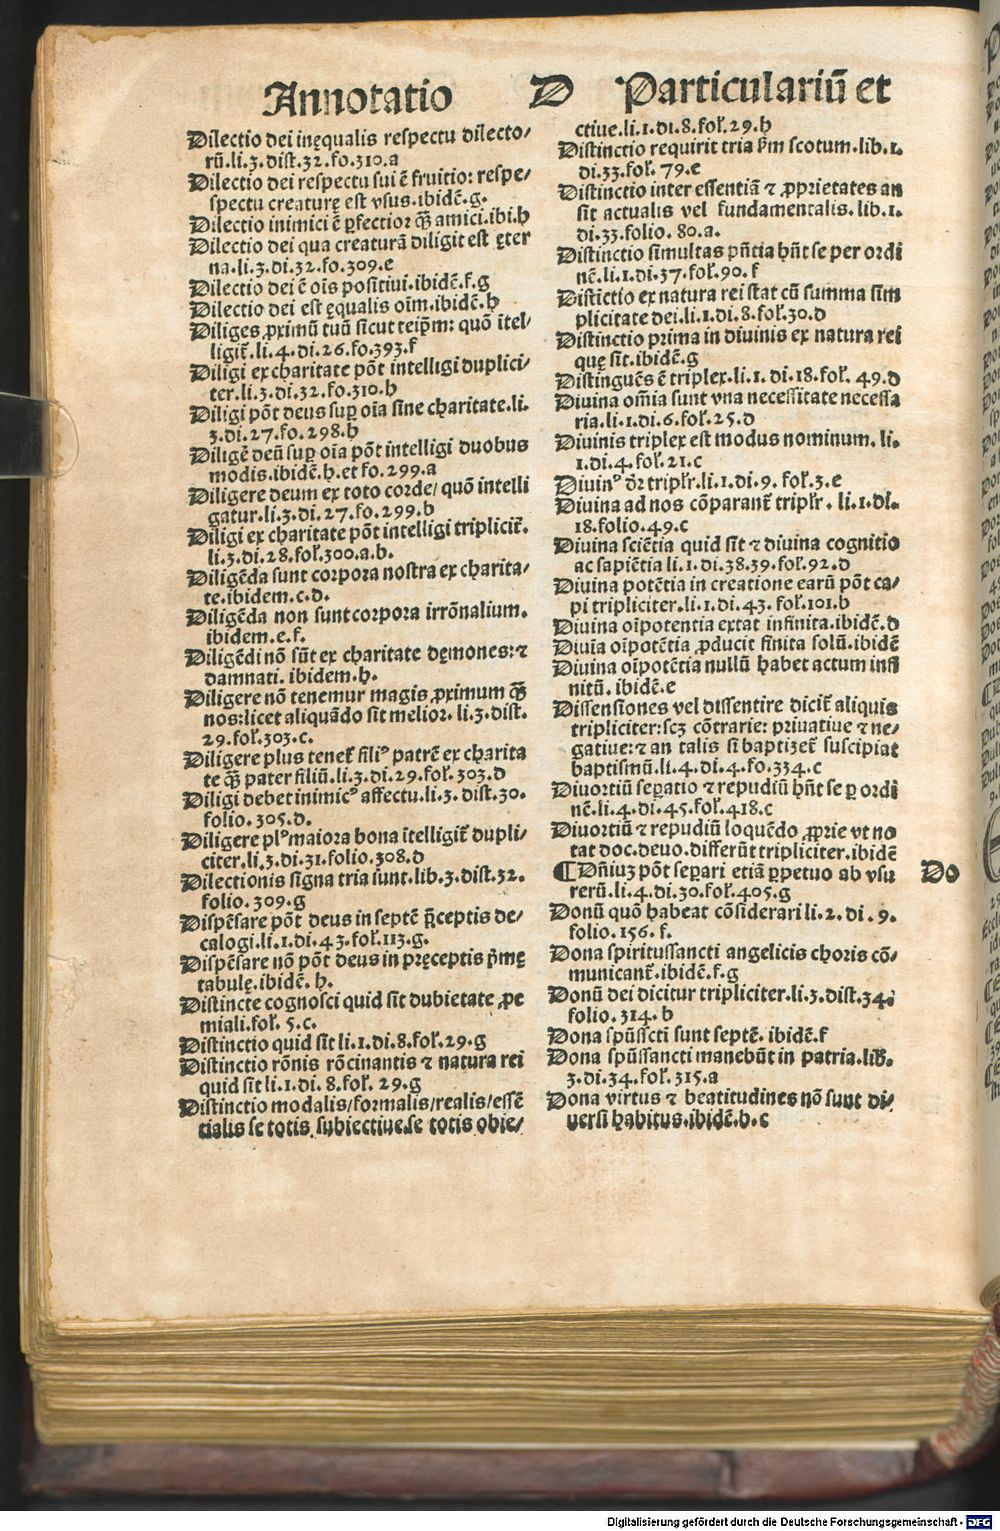 Annotatio D Particulariũ et
Dilectio dei inęqualis respectu dilecto/
rũ.li.3.dist.32.fo.310.a
Dilectio dei respectu sui ē fruitio: respe/
spectu creaturę est vsus.ibidē.g.
Dilectio inimici ē ꝑfectior q̃ꝫ amici.ibi.h
Dilectio dei qua creaturã diligit est ęter
na.li.3.di.32.fo.309.e
Dilectio dei ē oĩs positiui.ibidē.f.g
Dilectio dei est ęqualis oĩm.ibidē.h
Diliges ꝓximũ tuũ sicut teip̃m: quõ ĩtel/
ligit̃.li.4.di.26.fo.393.f
Diligi ex charitate põt intelligi duplici/
ter.li.3.di.32.fo.310.b
Diligi põt deus suꝑ oĩa sine charitate.li.
3.di.27.fo.298.b
Diligẽ deũ suꝑ oĩa põt intelligi duobus
modis.ibidē.h.et fo.299.a
Diligere deum ex toto corde/ quõ intelli
gatur.li.3.di.27.fo.299.b
Diligi ex charitate põt intelligi triplicit̃.
li.3.di.28.fol̃.300.a.b.
Diligẽda sunt corpora nostra ex charita/
te.ibidem.c.d.
Diligẽda non sunt corpora irrõnalium.
ibidem.e.f.
Diligẽdi nõ sũt ex charitate dęmones:⁊
damnati. ibidem.h.
Diligere nõ tenemur magis ꝓximum q̃ꝫ
nos:licet aliquãdo sit melior. li.3.dist.
29.fol̃.303.c.
Diligere plus tenet̃ filiꝰ patrẽ ex charita
te q̃ꝫ pater filiũ.li.3.di.29.fol̃.303.d
Diligi debet inimicꝰ affectu.li.3. dist.30.
folio.305.d.
Diligere plꝰ maiora bona ĩtelligit̃ dupli/
citer.li.3.di.31.folio.308.d
Dilectionis signa tria sunt.lib.3.dist.32.
folio.309.g
Dispẽsare põt deus in septẽ p̃ceptis de/
calogi.li.1.di.43.fol̃.113.g.
Dispẽsare nõ põt deus in pręceptis p̃mę
tabulę.ibidē. h.
Distincte cognosci quid sit dubietate ꝓe
miali.fol̃. 5.c.
Distinctio quid sit li.1.di.8.fol̃.29.g
Distinctio rõnis rõcinantis ⁊ natura rei
quid sit li.1.di. 8.fol̃. 29.g
Distinctio modalis/formalis/realis/essẽ
tialis se totis subiectiue.se totis obie/
ctiue.li.1.di.8.fol̃.29.h
Distinctio requirit tria ẜm scotum.lib.1.
di.33.fol̃. 79.e
Distinctio inter essentiã ⁊ ꝓprietates an
sit actualis vel fundamentalis.lib.1.
di.33.folio. 80.a.
Distinctio simultas p̃ñtia hñt se per ordi
nẽ.li.1.di.37.fol̃.90.f
Distĩctio ex natura rei stat cũ summa sim
plicitate dei.li.1.di.8.fol̃.30.d
Distinctio prima in diuinis ex natura rei
quę sit.ibidē.g
Distinguẽs ē triplex.li.1. di.18.fol̃. 49.d
Diuina om̃ia sunt vna necessitate necessa
ria.li.1.di.6.fol̃.25.d
Diuinis triplex est modus nominum. li.
1.di.4.fol̃.21.c
Diuinꝰ dr̃ triplr̃.li.1.di.9. fol̃.3.e
Diuina ad nos cõparant̃ triplr̃. li.1.di.
18.folio.49.c
Diuina sciẽtia quid sit ⁊ diuina cognitio
ac sapiẽtia li.1.di.38.39.fol̃.92.d
Diuina potẽtia in creatione earũ põt ca/
pi tripliciter.li.1.di.43. fol̃.101.b
Diuina oĩpotentia extat infinita.ibidē.d
Diuia oĩpotẽtia ꝓducit finita solũ.ibidē
Diuina oĩpotẽtia nullũ habet actum infi
nitũ. ibidē.e
Dissensiones vel dissentire dicit̃ aliquis
tripliciter:scꝫ cõtrarie: priuatiue ⁊ ne/
gatiue:⁊ an talis si baptizet̃ suscipiat
baptismũ.li.4.di.4.fo.334.c
Diuortiũ seꝑatio ⁊ repudiũ hñt se ꝑ ordi
nẽ.li.4.di.45.fol̃.418.c
Diuortiũ ⁊ repudiũ loquẽdo ꝓprie vt no
tat doc.deuo.differũt tripliciter.ibidē
¶Dñiuꝫ põt seꝑari etiã ꝑpetuo ab vsu
rerũ.li.4.di.30.fol̃.405.g
Do
Donũ quõ habeat cõsiderari li.2. di.9.
folio.156. f.
Dona spiritussancti angelicis choris cõ/
municant̃.ibidē.f.g
Donũ dei dicitur tripliciter.li.3.dist.34.
folio.314.b
Dona spũssc̃ti sunt septẽ. ibidē.f
Dona spũssancti manebũt in patria.lib̃.
3.di.34.fol̃.315.a
Dona virtus ⁊ beatitudines nõ sunt di/
uersi habitus.ibidē.b.c
Digitalisierung gefördert durch die Deutsche Forschungsgemeinschaft - DFG